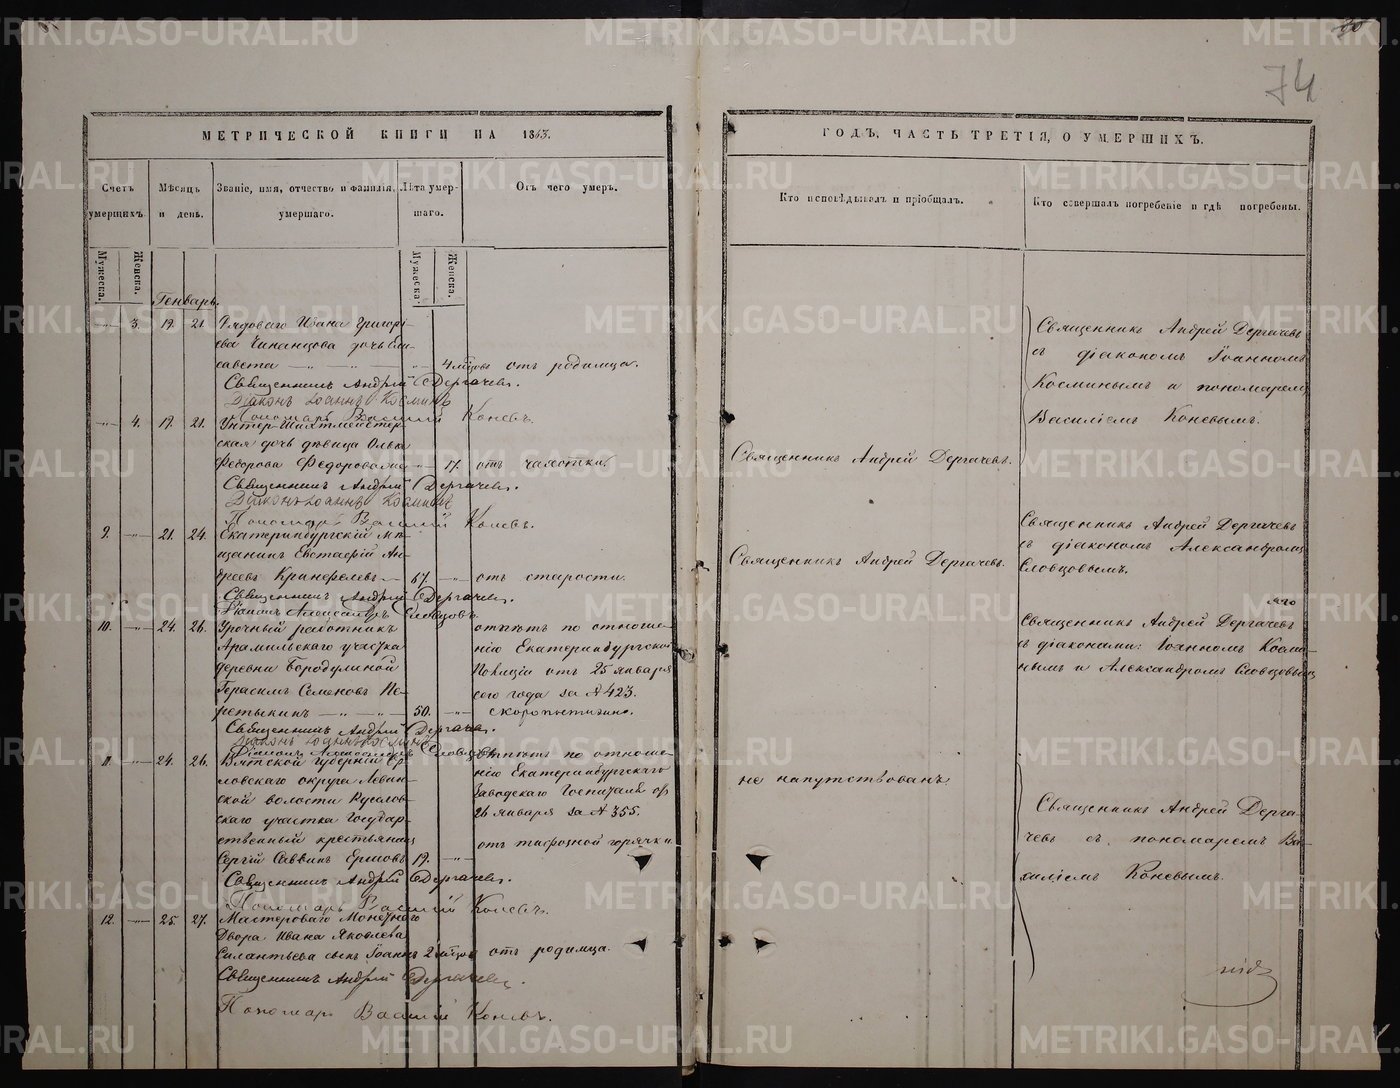 74
МЕТРИЧЕСКОЙ КНИГИ НА 1863.
ГОДЪ, ЧАСТЬ ТРЕТІЯ, О УМЕРШИХЪ.
Счетъ умершихъ.
Мѣсяцъ и день.
Званіе, имя, отчество и фамилія, умершаго.
Лѣта умершаго.
Отъ чего умеръ.
Кто исповѣдывалъ и пріобщалъ.
Кто совершалъ погребеніе и гдѣ погребены.
Мужеска.
Женска.
Мужеска.
Женска.
Генварь.
3. 19. 21. Рядоваго Ивана Григорі-
ева Чинанцова дочь Ели-
савета — 4 мѣсяцовъ отъ родимца.
Священникъ Андрей Дергачевъ.
Діаконъ Іоаннъ Косминъ
Пономарь Василій Коневъ.
Священникъ Андрей Дергачевъ
съ діакономъ Іоанномъ
Косминымъ и пономаремъ
Василіемъ Коневымъ.
4. 19. 21. Унтер-Шихтмейстер-
ская дочь дѣвица Ольга
Федорова Федорова — 17. отъ чахотки.
Священникъ Андрей Дергачевъ.
Діаконъ Іоаннъ Косминъ
Пономарь Василій Коневъ.
Священникъ Андрей Дергачевъ.
9. 21. 24. Екатеринбургскій мѣ-
щанинъ Евстафій Ан-
дреевъ — 67. отъ старости.
Священникъ Андрей Дергачевъ.
Діаконъ Александръ Словцовъ.
Священникъ Андрей Дергачевъ.
Священникъ Андрей Дергачевъ
съ діакономъ Александромъ
Словцовымъ.
10. 24. 26. Урочный работникъ
Арамильскаго участка
деревни Бородулиной
Герасимъ Семеновъ Пе-
ретыкинъ — 50.
отпѣтъ по отноше-
нію Екатеринбургской
Полиціи отъ 25 января
сего года за № 423.
скоропостижно.
Священникъ Андрей Дергачевъ.
Діаконъ Іоаннъ Косминъ
Діаконъ Александръ Словцовъ
Священникъ Андрей Дергачевъ
съ діаконами: Іоанномъ Косми-
нымъ и Александромъ Словцовымъ
11. 24. 26. Вятской Губерніи Ор-
ловскаго округа Левин-
ской волости
скаго участка Государ-
ственный крестьянинъ
Сергій Саввинъ Ершовъ 19.
отпѣтъ по отноше-
нію Екатеринбургскаго
Заводскаго Госпиталя отъ
26 января за № 355.
отъ тифозной горячки
Священникъ Андрей Дергачевъ.
Пономарь Василій Коневъ.
не напутствованъ.
Священникъ Андрей Дерга-
чевъ съ пономаремъ Ва-
силіемъ Коневымъ.
12. 25. 27. Мастероваго Монетнаго
Двора Ивана Яковлева
Силантьева сынъ Іоаннъ 2 мѣсяцовъ отъ родимца.
Священникъ Андрей Дергачевъ.
Пономарь Василій Коневъ.
METRIKI.GASO-URAL.RU